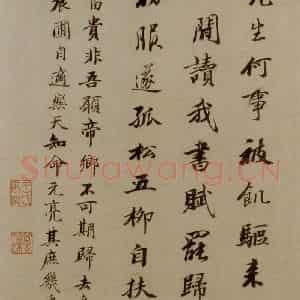 先生何事被飢驅来
閒讀我書賦罷歸
初服遂孤松五柳自扶
富貴非吾願帝鄉不可期歸去来
園自適樂天知命元亮其庶幾
Shufawang.CN